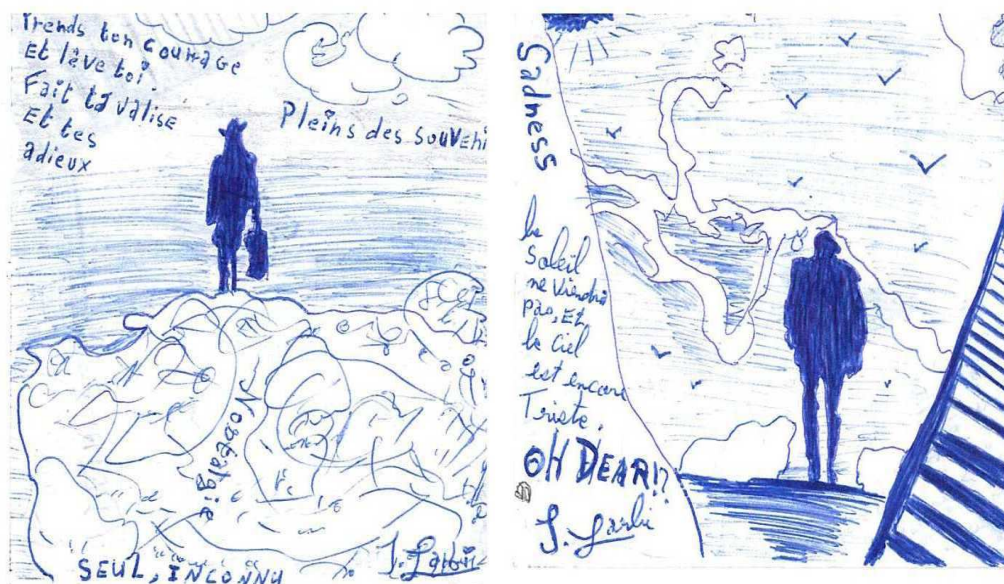 Prends ton courage
Et lève toi
Fait ta valise
Et tes
adieux
Pleins des souveni
Nostalgie
SEUL, INCONNU
Sadness
le
Soleil
ne viendra
pas, Et
le ciel
est encore
Triste.
OH DEAR!?